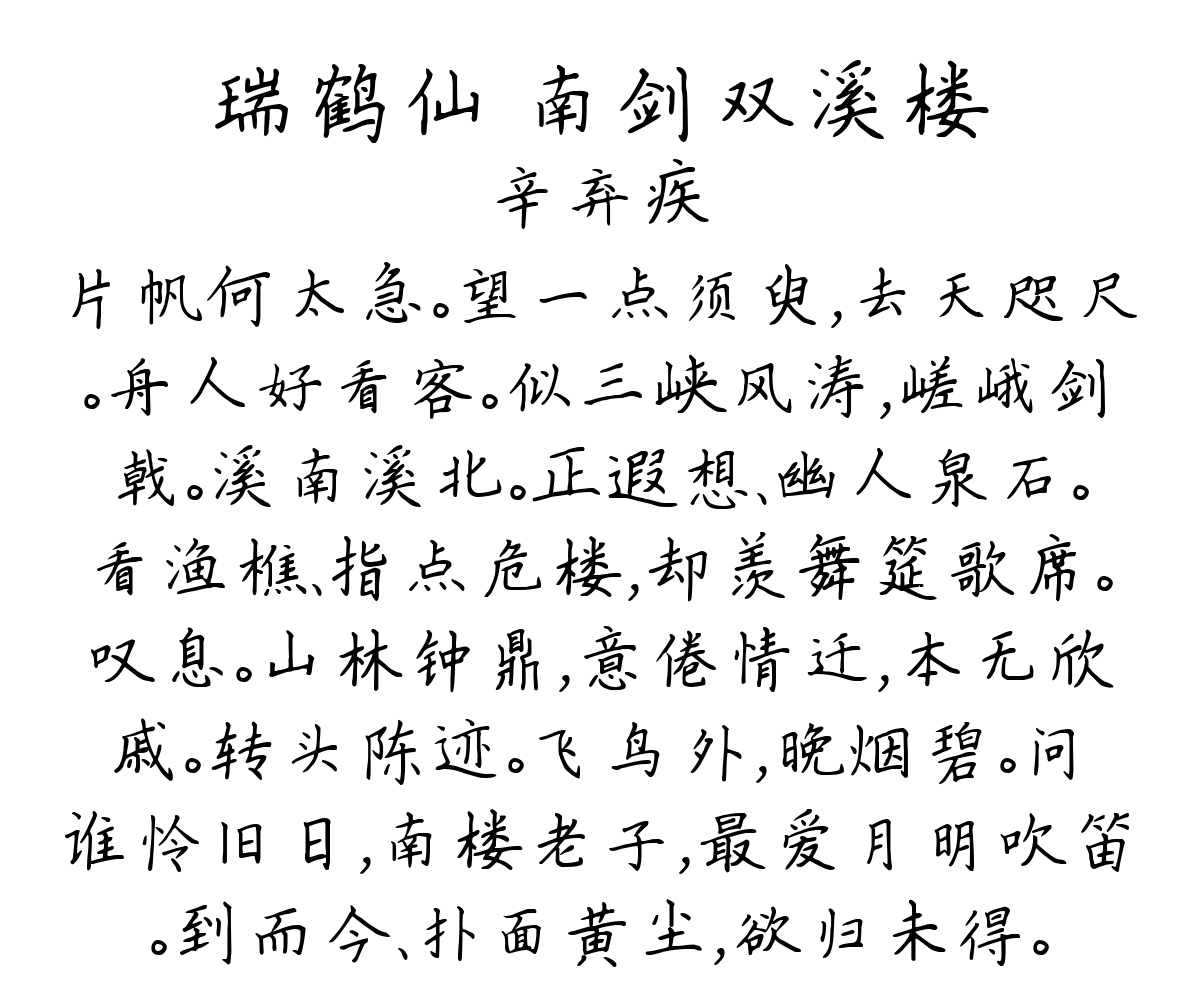 瑞鹤仙 南剑双溪楼
辛弃疾
片帆何太急。望一点须臾,去天咫尺
。舟人好看客。似三峡风涛,嵯峨剑
戟。溪南溪北。正遐想、幽人泉石。
看渔樵、指点危楼,却羡舞筵歌席。
叹息。山林钟鼎,意倦情迁,本无欣
戚。转头陈迹。飞鸟外,晚烟碧。问
谁怜旧日,南楼老子,最爱月明吹笛
。到而今、扑面黄尘,欲归未得。